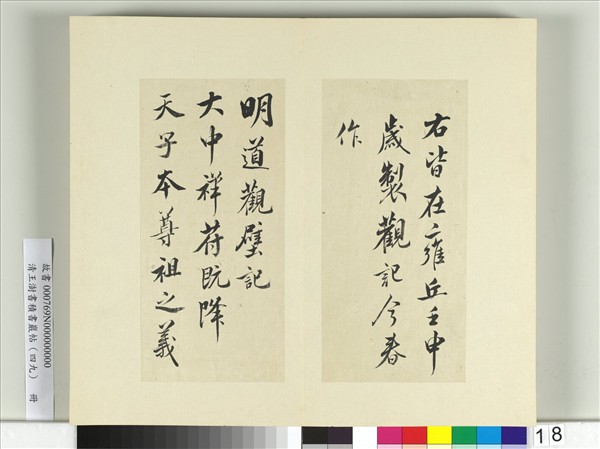 右皆在雍丘壬申
歲製觀記今春
作
明道觀壁記
大中祥苻旣降
天子本尊祖之義
故書 000769N000000000
清王澍書積書巖帖(四九) 冊
18